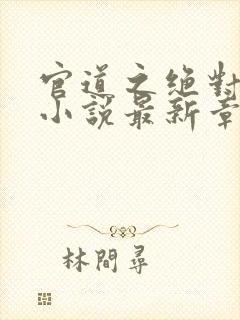 官道之絶對
小說最新章
林間尋